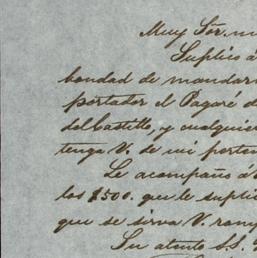 Muy Sór. m
Suplico á
bondad de mandar
portador el Pagaré d
del Castillo, y cualquier
tenga V. de mi perten
Le acompaño á
los $500. que le suplic
que se sirva V. romp
Su atento S.S.